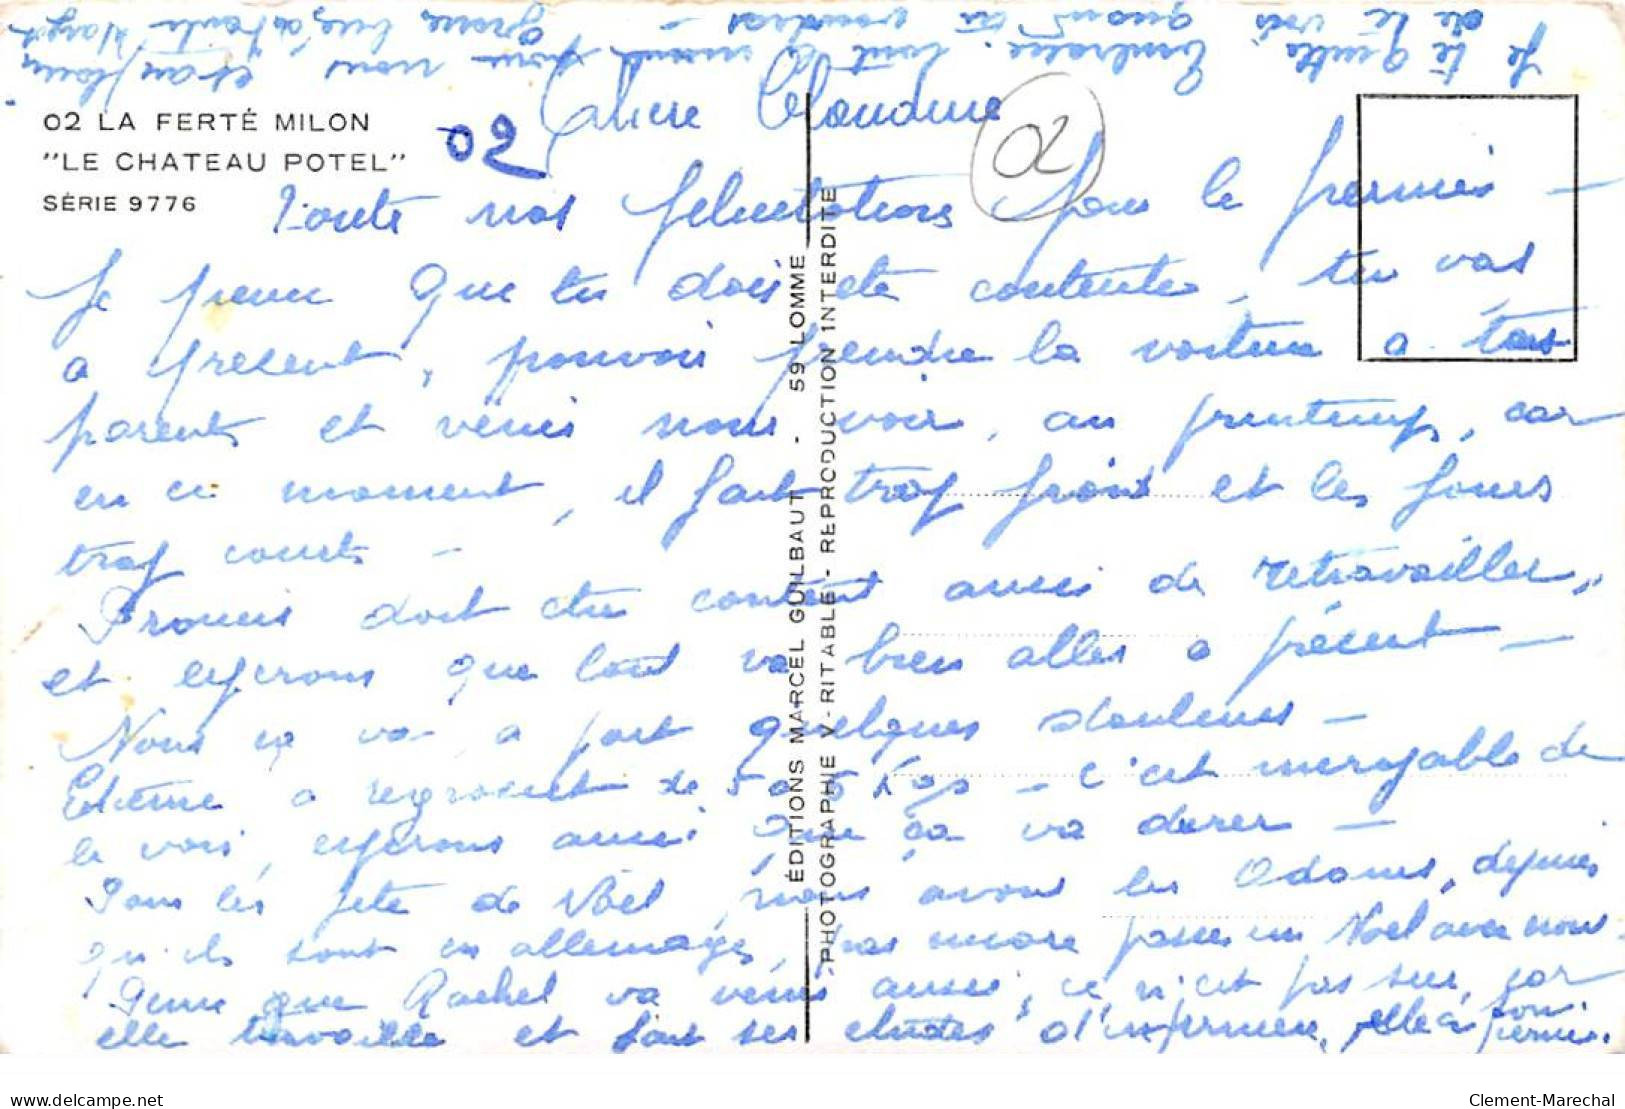 02 LA FERTÉ MILON
"LE CHATEAU POTEL"
SÉRIE 9776
02
02
ÉDITIONS MARCEL GUILBAUT - 59 LOMME
PHOTOGRAPHIE VÉRITABLE - REPRODUCTION INTERDITE
Chère Claudine
Toute nos félicitations pour le permis -
Je pense que tu dois etre contente, tu vas
a present, pouvoir prendre la voiture a tes
parents et venir nous voir, au printemps, car
en ce moment, il fait trop froid et les jours
trop courts -
Francis doit etre content aussi de retravailler,
et esperons que tout va bien aller a présent -
Nous ça va a part quelques douleurs -
Etienne a regrossit de 5 a 6 Kgs - c'est incroyable de
le voir, esperons aussi que ça va durer -
Pour les fete de Noël, nous avons les Adams, depuis
qu'ils sont en allemagne, pas encore passer un Noel avec nous -
Pense que Rachel va venir aussi, ce n'est pas sur, car
elle travaille et fait ses etudes d'infirmiere, elle a son permis.
Je te quitte. Embrasse tout le monde pour nous et au plaisir
de te voir quand tu voudras - Grosse bises